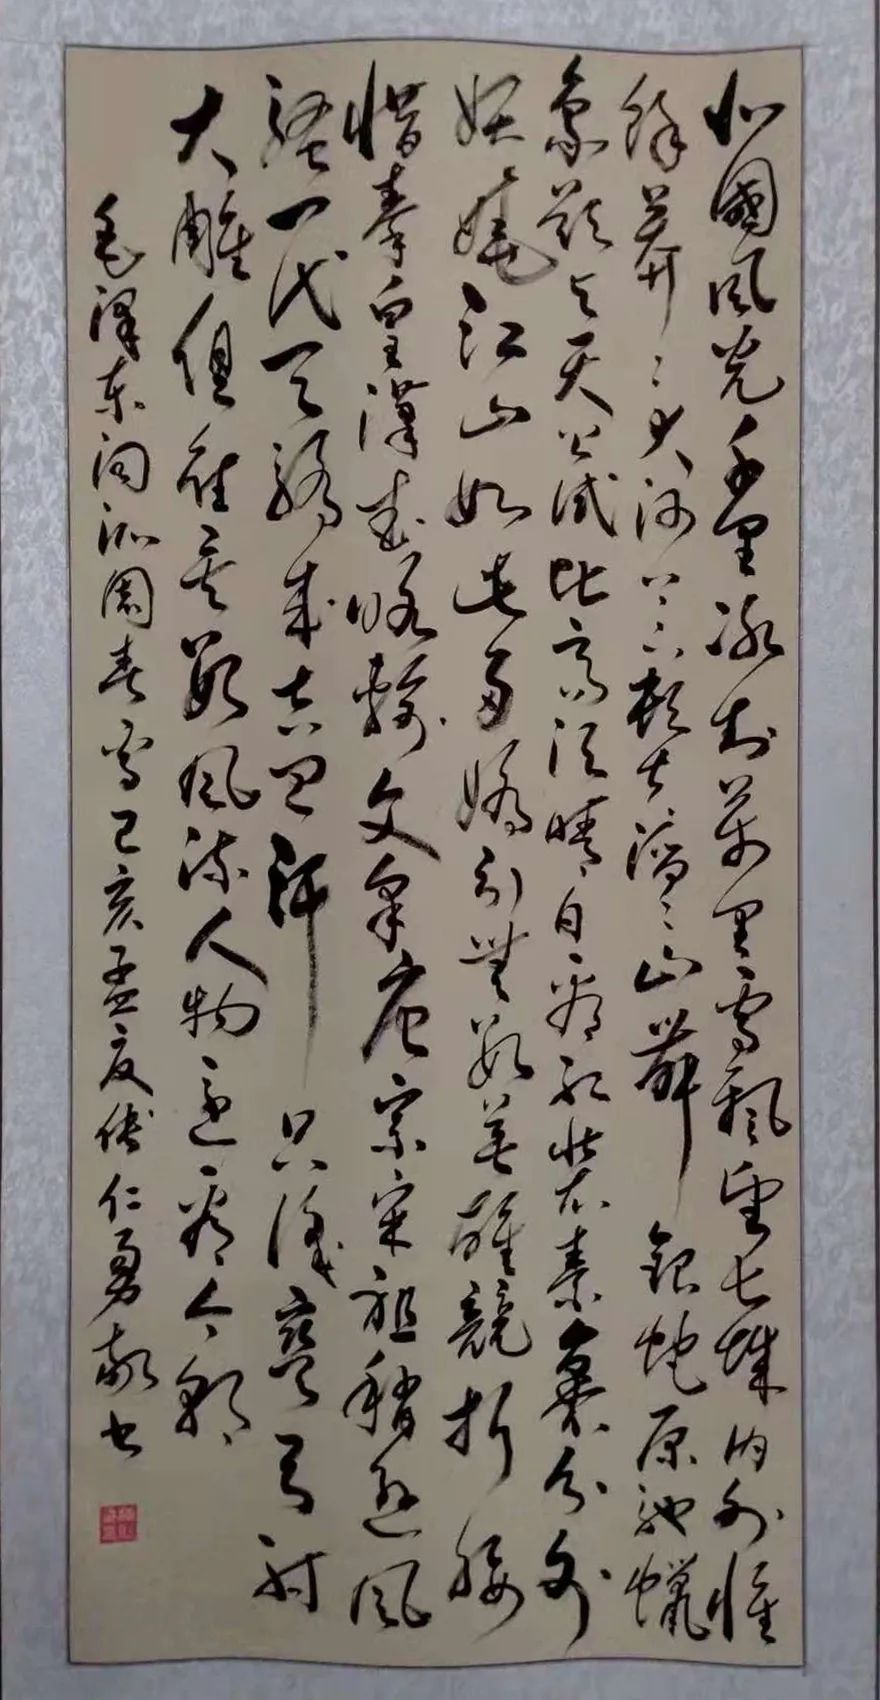 北國風光千里冰封萬里雪飄望长城内外惟
餘莽々大河上下頓失滔々山舞銀蛇原馳蠟
象欲与天公試比高須晴日看紅裝素裹分外
妖嬈江山如此多嬌引無數英雄競折腰
惜秦皇漢武略輸文采唐宗宋祖稍遜風
騷一代天驕成吉思汗只識彎弓射
大雕俱往矣數風流人物還看今朝
毛泽东词沁園春雪己亥孟夏傅仁勇敬书